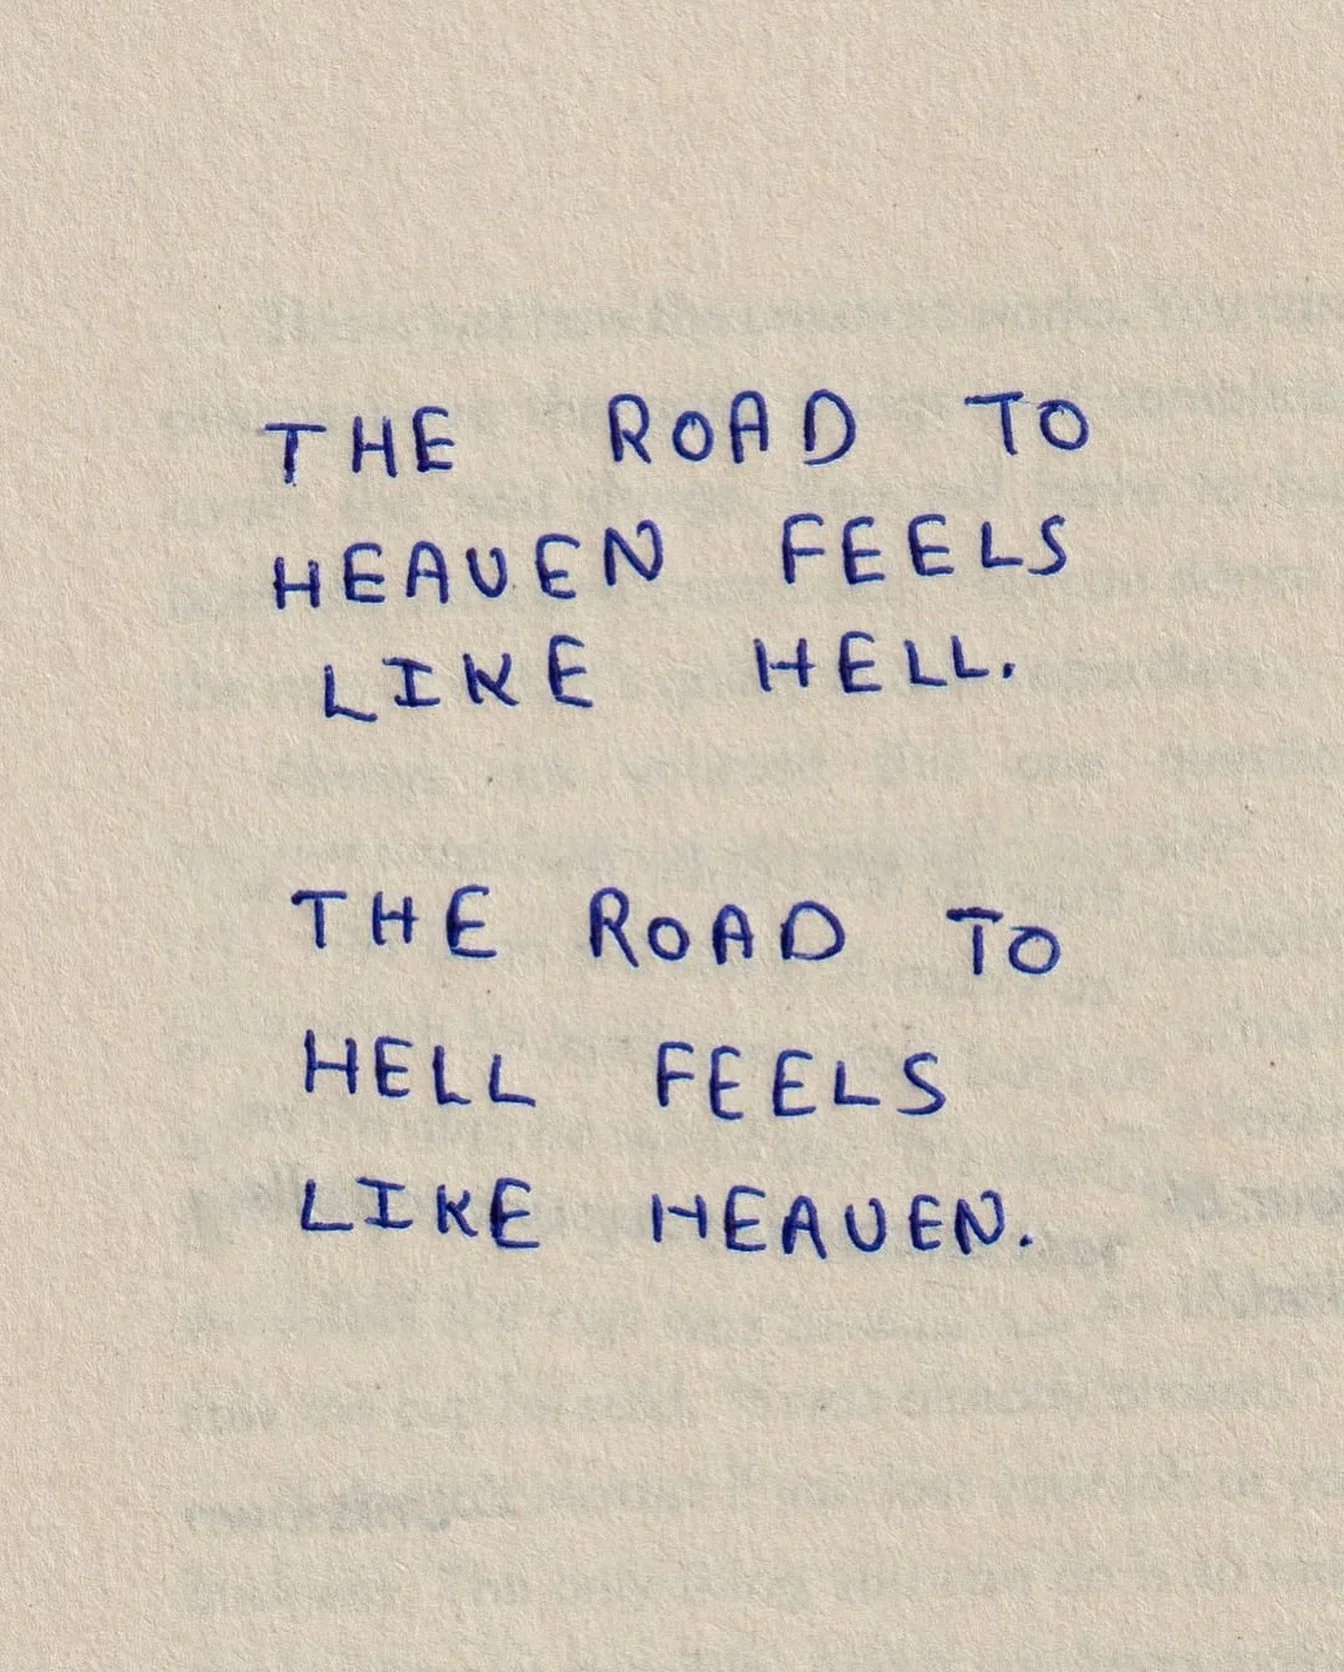 THE ROAD TO
HEAVEN FEELS
LIKE HELL.
THE ROAD TO
HELL FEELS
LIKE HEAVEN.